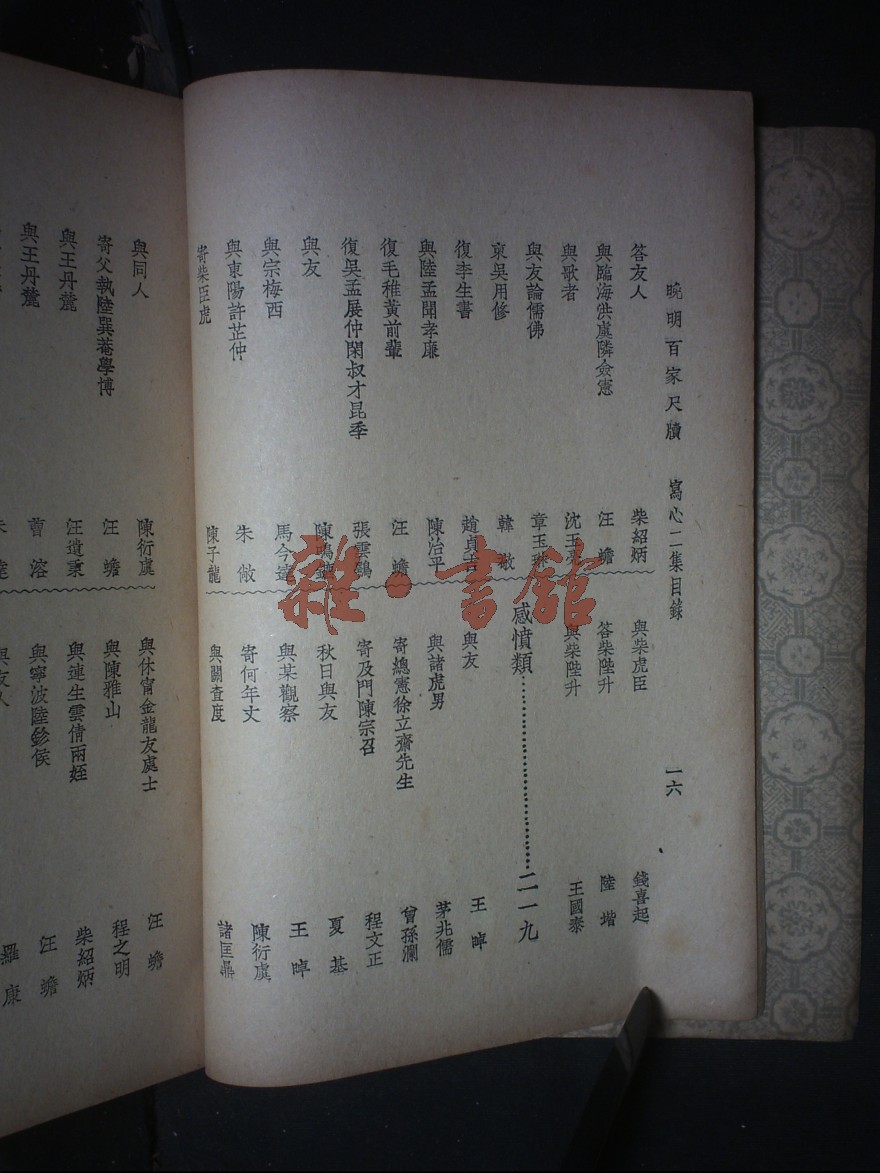 晚明百家尺牘　寫心二集目錄　一六
答友人　柴紹炳
與臨海洪虞隣僉憲　汪蟾
與歌者　沈王亮
與友論儒佛　章玉琳
柬吳用修　韓敬
復李生書　趙貞吉
與陸孟聞孝廉　陳治平
復毛稚黃前輩　汪蟾
復吳孟展仲閑叔才昆季　張雲鶚
與友
與宗梅西　馬今達
與東陽許芷仲　朱敞
寄柴臣虎　陳子龍
與柴虎臣　錢喜起
答柴陛升　陸堦
與柴陛升　王國泰
感憤類　二一九
與友　王晫
與諸虎男　茅兆儒
寄總憲徐立齋先生　曾孫瀾
寄及門陳宗召　程文正
秋日與友　夏基
與某觀察　王晫
寄何年丈　陳衍虞
與關查度　諸匡鼎
與同人　陳衍虞
寄父執陸巽菴學博　汪蟾
與王丹麓　汪遺秉
與王丹麓　曹溶
與休甯金龍友處士　汪蟾
與陳雅山　程之明
與連生雲倩兩姪　柴紹炳
與寧波陸鉁侯　汪蟾
與友人　羅康
雜·書館